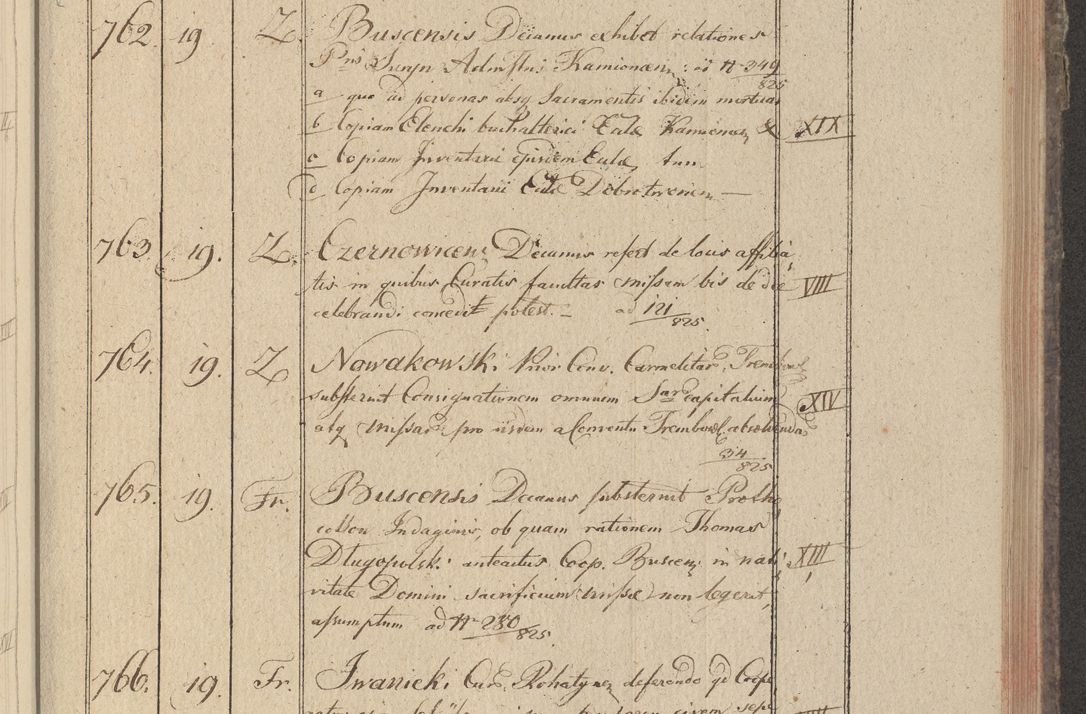 762. 19 Z. Buscensis Decanus exhibet relationes
Pris Admstri Kamionzen: ad N 349/825
a quo ad personas absq Sacramentis ibidem mortuas
b Copiam Elenchi buchalterici Eccliæ Kamionen & XIX
c Copiam Inventarii ejusdem Eccliæ, tum
d Copiam Inventarii Eccliæ Dobrotworien. —
763. 19. Z. Czernovicen: Decanus refert de locis affilia
tis in quibus Curatis facultas missam bis de die VIII
celebrandi concedi potest. — ad 121/825.
764. 19. Z Nawakowski Prior Conv. Carmelitar. Trembowl
substernit Consignationem omnium Sar capitalium XIV
atq missar: pro iisdem a Conventu Trembowl. absolvenda
34/825
765. 19. Fr. Buscensis Decanus substernit Protho
collon Indaginis, ob quam rationem Thomas
Długopolski anteactus Coop. Buscen: in nati XIII
vitate Domini sacrificium missæ non legerit,
assumptum ad N 230/825.
766. 19. Fr. Iwanicki Cur. Rohatynen deferendo qd Coope